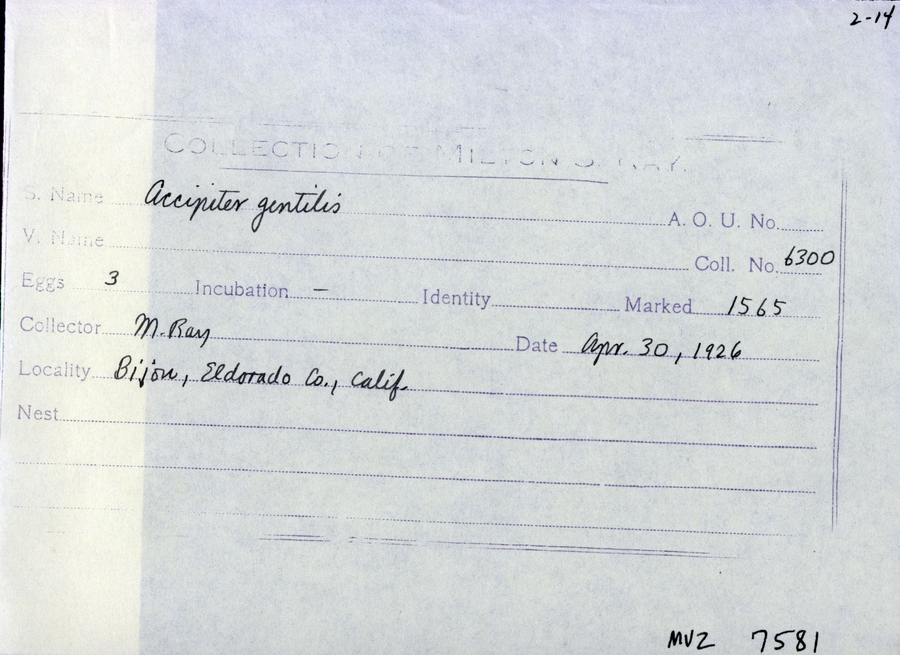 2-14
COLLECTION OF MILTON S. RAY.
S. Name Accipiter gentilis A. O. U. No.
V. Name Coll. No. 6300
Eggs 3 Incubation — Identity Marked 1565
Collector M. Ray Date Apr. 30, 1926
Locality Bijou, Eldorado Co., Calif.
Nest
MVZ 7581